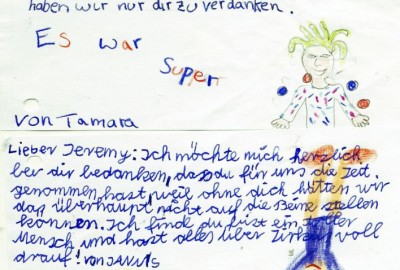 haben wir nur dir zu verdanken.
Es war
Super
von Tamara
Lieber Jeremy: Ich möchte mich herzlich
bei dir bedanken, dass du für uns die Zeit
genommen hast, weil ohne dich hätten wir
das überhaupt nicht auf die Beine stellen
können. Ich find du bist ein toller
Mensch und hast alles über Zirkus voll
drauf! von JANNIS